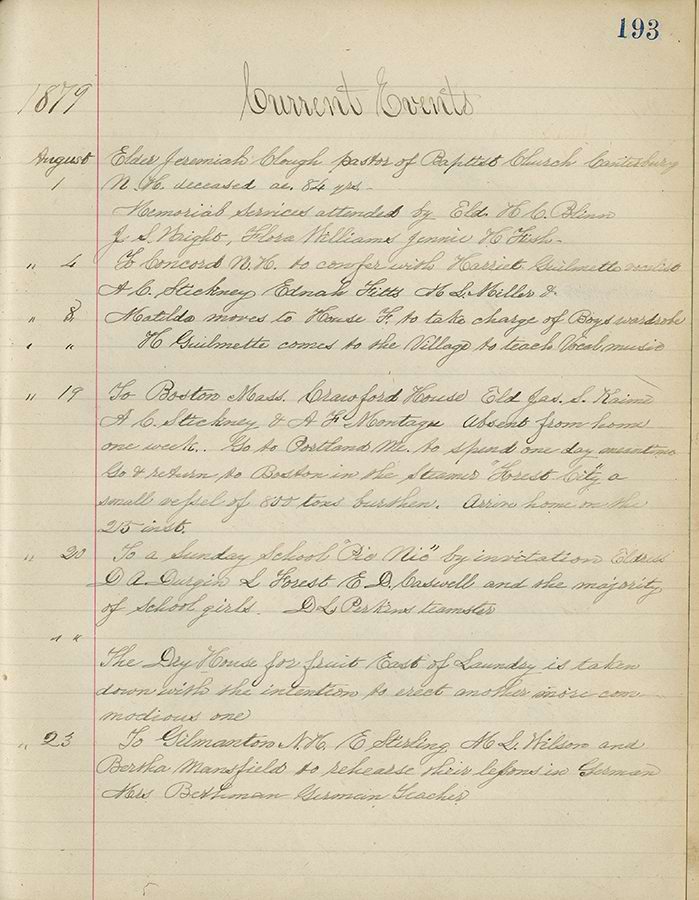 193
1879 Current Events
August Elder Jeremiah Clough pastor of Baptist Church Canterbury
1 N. H. deceased ae. 84 yrs -
Memorial services attended by Eld. H. C. Blinn
J. S. Wright, Flora Williams Jennie H. Fish -
" 4 To Concord N. H. to confer with Harriet Guilmette vocalist
A. C. Stickney Ednah Fitts M. L. Miller &
" 8 Matilda moves to House F. to take charge of Boys wardrobe
" " H Guilmette comes to the Village to teach Vocal music
" 19 To Boston Mass. Crawford House Eld Jas. S. Kaime
A C. Stickney & A F Montague Absent from home
one week.. Go to Portland Me. to spend one day
Go & return to Boston in the Steamer "Forest City" a
small vessel of 800 tons burthen. Arrive home on the
25 inst.
" 20 To a Sunday School "Pic Nic" by invitation Eldress
D A. Durgin L Forest E. D. Caswell and the majority
of School girls. D L Perkins teamster
" "
The Dry House for fruit East of Laundry is taken
down with the intention to erect another more com-
modious one
" 23 To Gilmanton N. H. E Stirling M L. Wilson and
Bertha Mansfield to rehearse their lessons in German
Mrs German Teacher